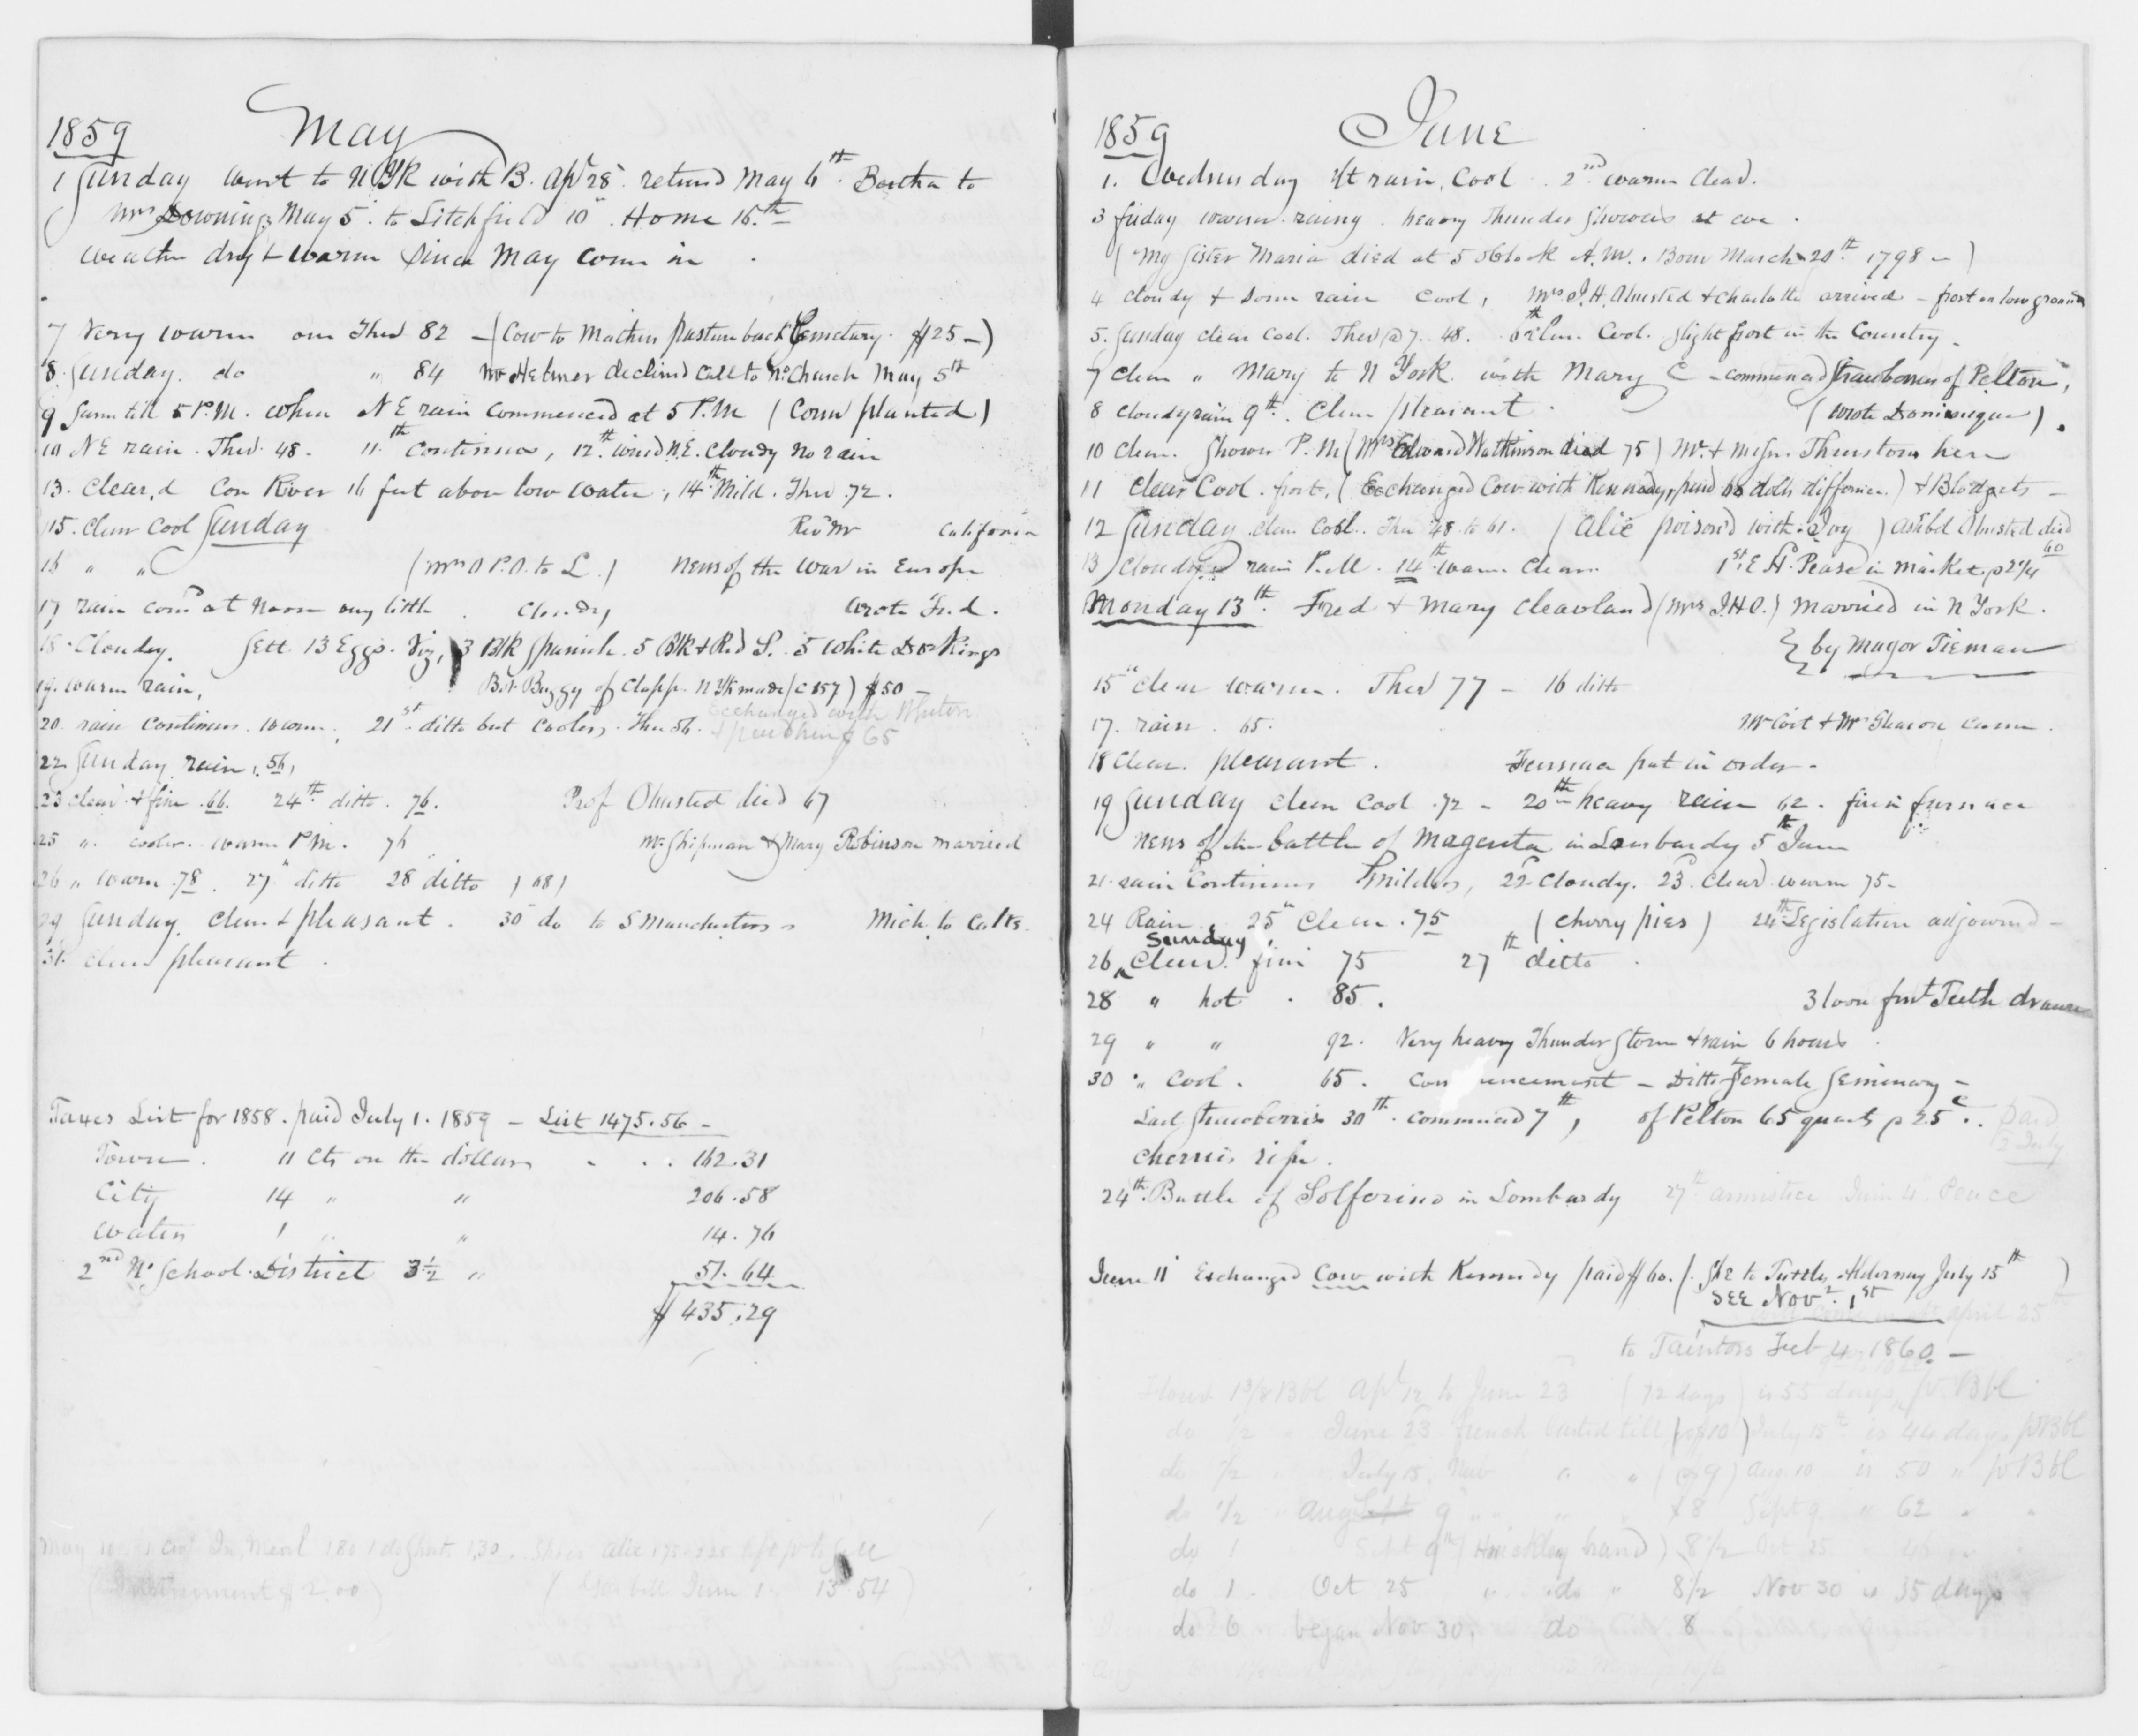 1859 May
1 Sunday went to N Yk with B. Apl 28. returnd May 6th. Bertha to
Mrs Downings May 5. to Litchfield 10". Home 16.th
weather dry & warm Since May come in
7 Very warm our Ther 82 (Cow to Mathers pasture back Cemetary. $25 -)
8. Sunday. do " 84 Mr Helmer declined call to No. Church May 5th
9 Same till 5 P.M. when NE rain commenced at 5 P.M (Corn planted)
10 NE rain. Ther. 48. 11.th continues, 12.th wind N.E. cloudy no rain
13. Clear,d Con River 16 feet above low water, 14th Mild. Ther 72.
15. Clear Cool Sunday Revd Mr California
16 " " (Mrs O P.O. to L.) News of the War in Europe
17 rain comd at Noon very little. Cloudy wrote Fred.
18. Cloudy. Sett 13 Eggs. Viz, 3 Blk Spanish. 5 Blk & Red S. 5 White Dorkings
19. warm rain, Bot Buggy of Clapp. N Yk made (c 157) $50 -
20. rain continues. warm, 21st. ditto but cooler. Ther 56. Exchanged with
65
22 Sunday rain, 56,
23 clear & fine .66. 24th ditto. 76. Prof Olmsted died 67
25 " cooler. warm P.M. 76 Mr Shipman & Mary Robinson married
26 " warm .78. 27" ditto 28 ditto (68)
29 Sunday. Clear & pleasant. 30" do to S Manchester Mich. to Colts.
31. clear pleasant.
Taxes List for 1858. paid July 1. 1859 - List 1475.56 -
Town. 11 cts on the dollar . . . 162.31
City 14 " " 206.58
Water 1 " " 14.76
2nd N. School District 3½ " 51.64
$ 435.29
May 10 In. Meal 180 1 do Shorts 1,30. Shoes Alie 175
$2.00) ( bill June 1. 13 54)
1859 June
1. Wednesday lt rain, Cool. 2nd warm clear.
3 friday warm. rainy. heavy Thunder Showers at eve.
(My sister Maria died at 5 oClock A.M. Born March 20th 1798 -)
4 cloudy & some rain Cool, Mrs J.H. Olmsted & Charlotte arrived - frost on low grounds
5. Sunday clear cool. Ther @ 7. 48. 6th clear Cool. slight frost in the Country.
7 Clear " Mary to N York. with Mary C - commenced Strawberries of Pelton,
8 cloudy rain 9th. Clear pleasant. (wrote Dominique).
10 clear. Shower P.M (Mrs Edward Watkinson died 75) Mr. & Thurstons here
11 clear Cool. frost, (Exchanged Cow with Kennedy, paid 60 dolls difference.) & Blodgets -
12 Sunday. clear cool. Ther 48 to 61. (Alie poisond with Ivy) Ashbel Olmsted died
60
13) Cloudy rain P.M. 14th warm Clear. 1st, E H. Pease in market. p 2 1/4
Monday 13th. Fred & Mary Cleavland (Mrs J.H.O.) married in N York.
by Mayor Tieman
15" clear warm. Ther 77 - 16 ditto
17. rain. 65. Mr Coit & Mr Gleason came.
18 Clear. pleasant. Furnace put in order.
19 Sunday clear cool .72 - 20th heavy rain 62. fire in furnace
News of the battle of Magenta in Lombardy 5th June
21. rain continues & milder, 22 Cloudy. 23. Clear warm 75 -
24 Rain. 25" Clear. 75 (cherry pies) 24th Legislature adjournd -
26 Sunday Clear. fine 75 27th ditto.
28 " hot. 85. 3 loose front Teeth drawn
29 " " 92. Very heavy Thunder Storm & rain 6 hours.
30 " Cool. 65. Commencement - Ditto Female Seminary -
Last Strawberries 30th. commenced 7th, of Pelton 65 quarts p 25c. paid
2 July
cherries ripe.
24th. Battle of Solferino in Lombardy 27th armistice Peace
June 11 Exchanged Cow with Kennedy paid $60. (She to Tuttles Alderney July 15th)
SEE Novr. 1st
April 25
to Taintors Feb 4. 1860. -
Flour 1 3/8 Bbl Apl 12 to June 23 (72 days) is 55 days pr. Bbl
do 1/2 " June 23 french lasted till (pr $10) July 15th is 44 days pr Bbl
do 1/2 " July 15. " " ( 9) Aug. 10 is 50 " pr Bbl
do 1/2 " Aug Sept 9 " " 8 Sept 9 " 62 " "
do 1 Sept 9 (Hinckley brand) 8 1/2 Oct 25 46 "
do 1. Oct 25 " do " 8 1/2 Nov 30 is 35 days
do 6 began Nov 30. do 8